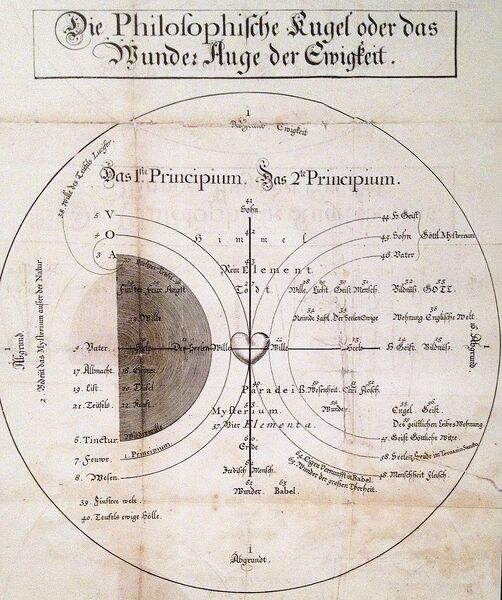 Die Philosophische Kugel oder das
Wunder Auge der Ewigkeit.
1
Abgrund. Ewigkeit
38. Wille des Teufels Lucifer.
Das 1te Principium. Das 2te Principium.
41
Sohn.
5 V
44 H. Geist
4 O
Himmel
45. Sohn Göttl Mysterium
3 A
46. Vater
Rein Element.
Finster. Feur Angst
Todt.
Wille. Licht. Geist Mensch.
Bildniß. GOTT.
2 Bedeut das Mysterium auser der Natur.
1 Abgrund.
Wille
Der Seelen Ewige
Wohnung. Englische Welt
1 Abgrund
9. Vater.
Der Seelen Wille
Wille
Seele
H. Geist Bildniß.
17. Allmacht.
18. Grimm
19. List.
20. Teufel
21. Teufels
22. Kunst.
Paradeiß.
Wesenheit.
Christi Fleisch.
Mysterium.
Wunder.
Engel Geist.
57 Vier Elementa.
Des geistlichen leibes Wohnung.
6. Tinctur
57. Geist Göttliche Witze.
Erde
7. Feuwr.
1. Principium.
64. Eigen Vernunfft in Babel.
65. Wunder der großen Thorheit.
58. Seelen freude in Ternario Sancto
8. Wesen
Irdisch Mensch.
48. Menschheit Fleisch.
62 63
Wunder. Babel.
39. Finstere welt.
40. Teufels ewige Hölle.
1
Abgrundt.